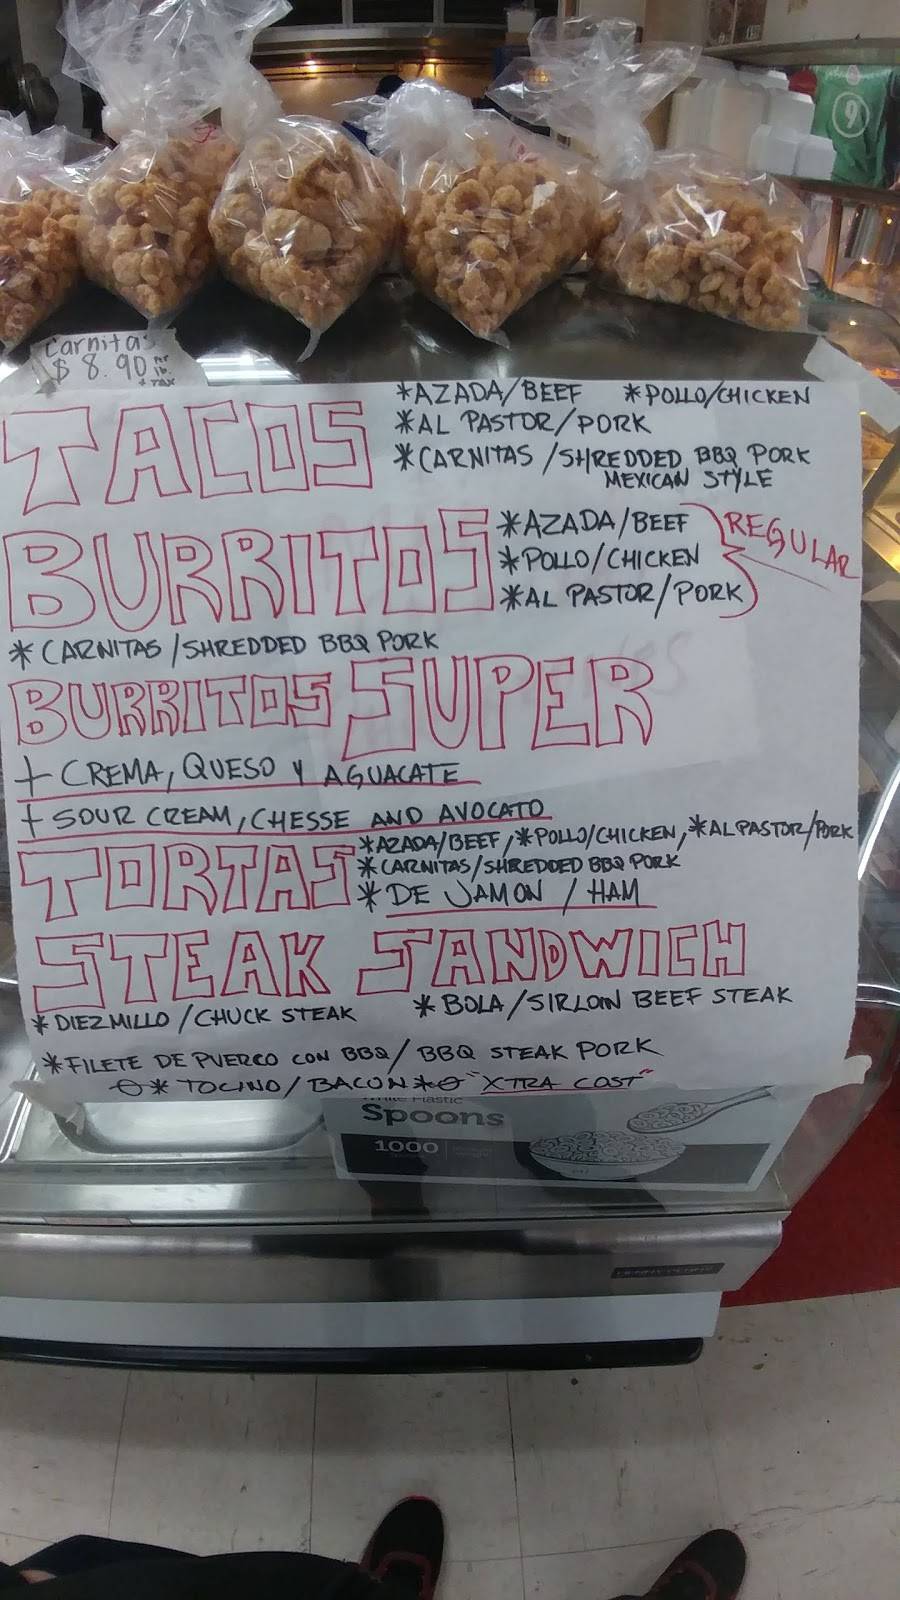 9
Carnitas
$ 8.90 Pr lb. + TAX
TACOS
*AZADA/BEEF *POLLO/CHICKEN
*AL PASTOR/PORK
*CARNITAS/SHREDDED BBQ PORK
MEXICAN STYLE
BURRITOS
*AZADA/BEEF
*POLLO/CHICKEN
*AL PASTOR/PORK
REGULAR
*CARNITAS/SHREDDED BBQ PORK
BURRITOS SUPER
+ CREMA, QUESO Y AGUACATE
+ SOUR CREAM, CHESSE AND AVOCATO
TORTAS
*AZADA/BEEF, *POLLO/CHICKEN, *AL PASTOR/PORK
*CARNITAS/SHREDDED BBQ PORK
*DE JAMON / HAM
STEAK SANDWICH
*DIEZMILLO/CHUCK STEAK *BOLA/SIRLOIN BEEF STEAK
*FILETE DE PUERCO CON BBQ/ BBQ STEAK PORK
*TOCINO/BACON* "XTRA COST"
White Plastic
Spoons
1000